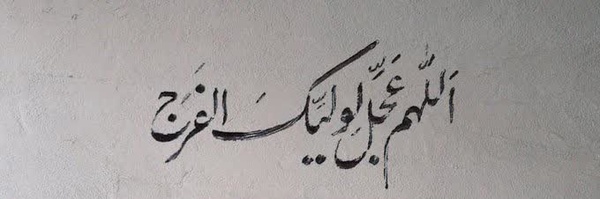 اَللّٰهم عَجِّل لِوَلیِّکَ الفَرَج